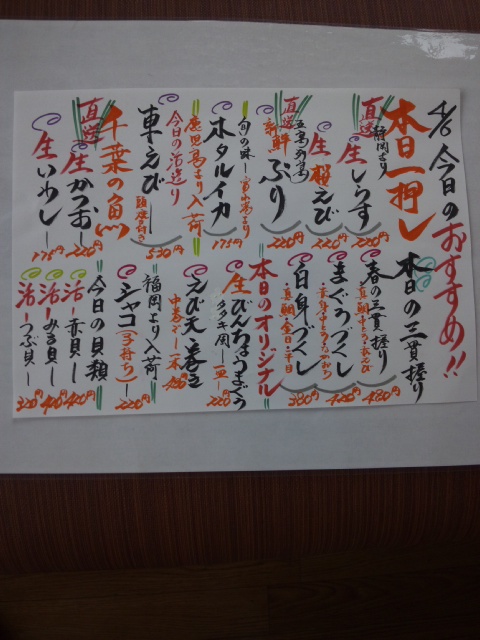 4/6 今日のおすすめ!!
本日一押し
直送 静岡より
生しらす 220円
生桜えび 220円
直送
新鮮ぶり 220円
旬の味
ホタルイカ 175円
鹿児島より入荷
今日の活造り
車えび 530円
頭塩付き
千葉の魚
直送
生かつお 220円
生いわし 175円
本日の三貫握り
春の三貫握り 480円
まぐろづくし 420円
白身づくし 380円
真鯛・金目・平目
本日のオリジナル
生びんちょうまぐろ
タタキ風 一皿 220円
えび天巻き
中巻ずし一本
福岡より入荷
シャコ(子持ち) 220円
今日の貝類
活赤貝 420円
活みる貝 420円
活つぶ貝 320円